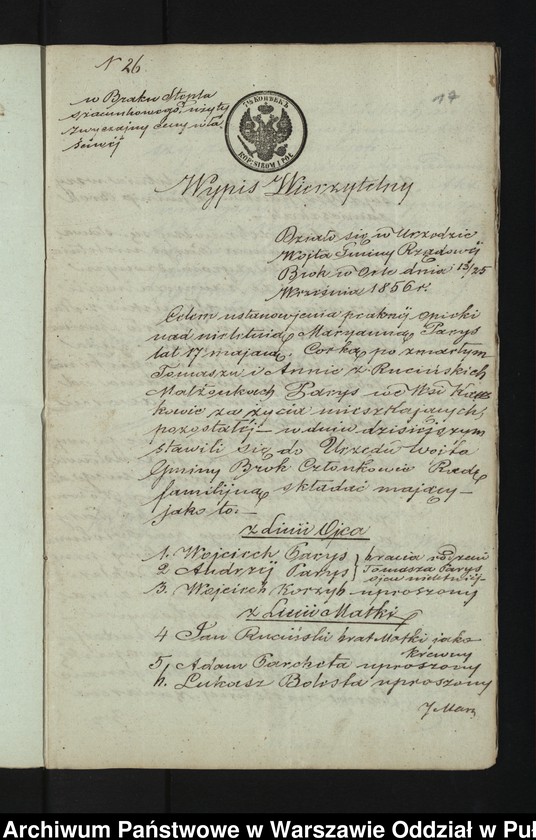 N 26.
17
w Braku Stępla
szacunkowego, użyty
zwyczajny ceny wła
ściwéj
7½ КОПѢЕКЪ
KOP. SIEDM I PÓŁ
Wypis Wierzytelny
Działo się w Urzędzie
Wójta Gminy Rządowéj
Brok w Orle dnia 13/25
Września 1856 r.
Celem ustanowienia prawnéj opieki
nad nieletnią Maryanną Parys
lat 17 mającą, Córką po zmarłym
Tomaszu i Annie z Rucińskich
Małżonkach Parys we Wsi
kowie za życia mieszkających,
pozostałéj – w dniu dzisiejszym
stawili się do Urzędu Wójta
Gminy Brok Członkowie Radę
familijną składać mający –
jako to. –
z Linii Ojca
1. Wojciech Parys } bracia rodzeni
2 Andrzéj Parys } Tomasza Parys
ojca nieletniéj
3. Wojciech Korzyb uproszony
z Linii Matki
4 Jan Ruciński brat Matki jako
krewny
5, Adam Parcheta uproszony
6. Łukasz Bolesta uproszony
Archiwum Państwowe w Warszawie Oddział w Puł